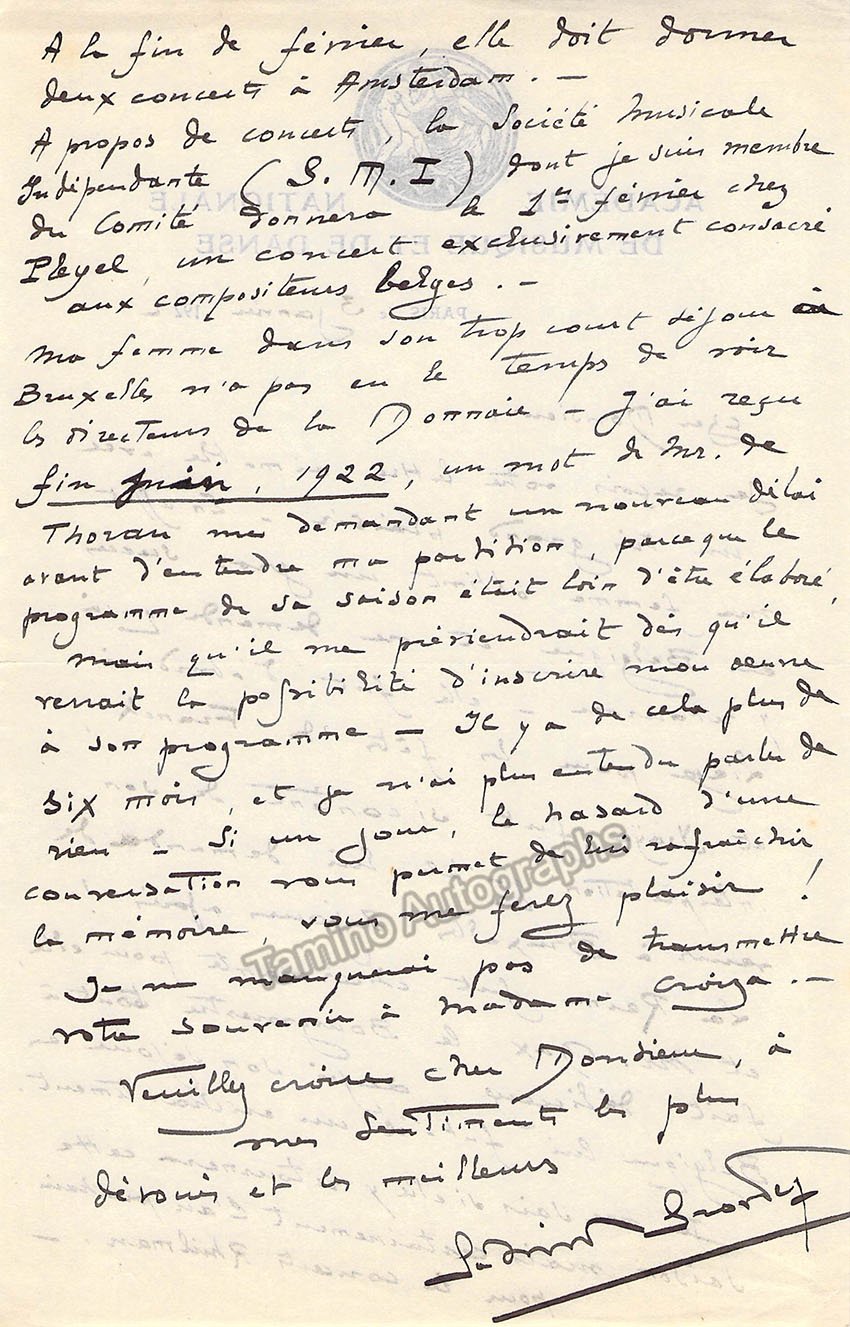 A la fin de février, elle doit donner
deux concerts à Amsterdam. —
A propos de concerts, la Société Musicale
Indépendante (S. M. I) dont je suis membre
du Comité donnera le 1er février chez
Pleyel, un concert exclusivement consacré
aux compositeurs belges. —
Ma femme dans son trop court séjour à
Bruxelles n'a pas eu le temps de voir
les directeurs de la Monnaie — J'ai reçu
fin juin, 1922, un mot de Mr. de
Thoran me demandant un nouveau délai
avant d'entendre ma partition, parceque le
programme de sa saison était loin d'être élaboré,
mais qu'il me préviendrait dès qu'il
verrait la possibilité d'inscrire mon oeuvre
à son programme — Il y a de cela plus de
six mois, et je n'ai plus entendu parler de
rien — Si un jour, le hasard d'une
conversation vous permet de lui rafraîchir
la mémoire, vous me ferez plaisir !
Je ne manquerai pas de transmettre
votre souvenir à Madame Croiza. —
Veuillez croire cher Monsieur, à
mes sentiments les plus
dévoués et les meilleurs
Gabriel Grovlez
Tamino Autographs
ACADÉMIE NATIONALE
DE MUSIQUE ET DE DANSE
PARIS